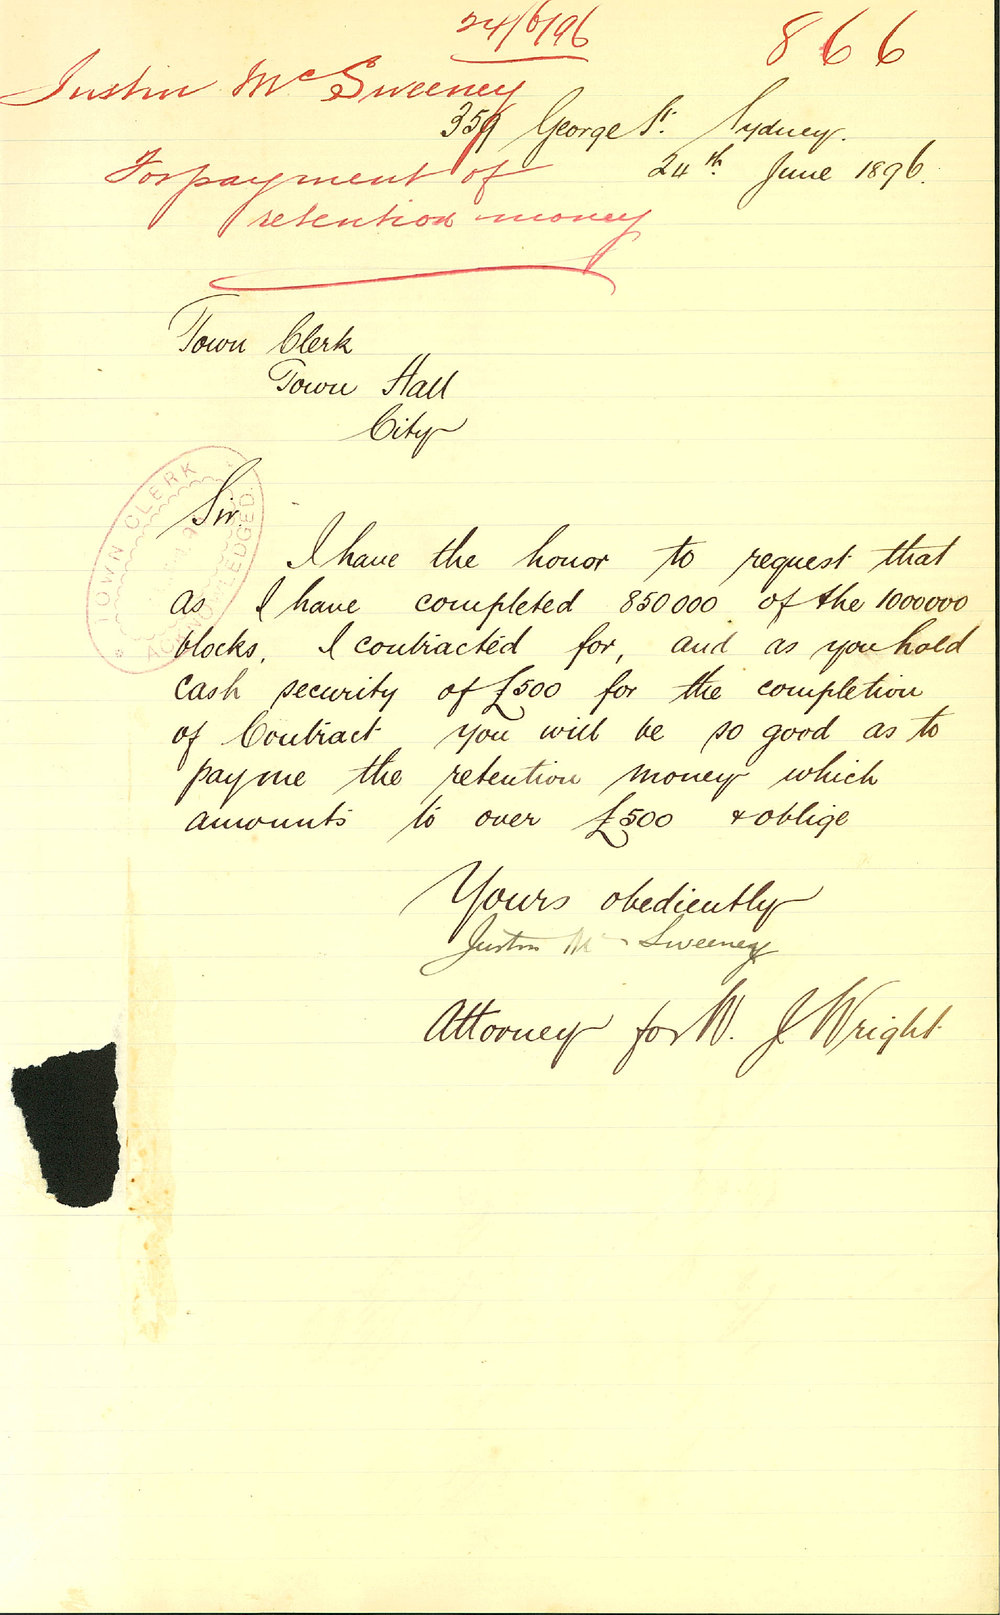 24/6/96
866
Justin McSweeney
359 George St. Sydney.
For payment of
24th June 1896.
retention money
Town Clerk
Town Hall
City
TOWN CLERK
ACKNOWLEDGED
Sir.
I have the honor to request that
as I have completed 850000 of the 1000000
blocks, I contracted for, and as you hold
cash security of £500 for the completion
of Contract you will be so good as to
pay me the retention money which
amounts to over £500 & oblige
Yours obediently
Justin McSweeney
Attorney for W. J Wright